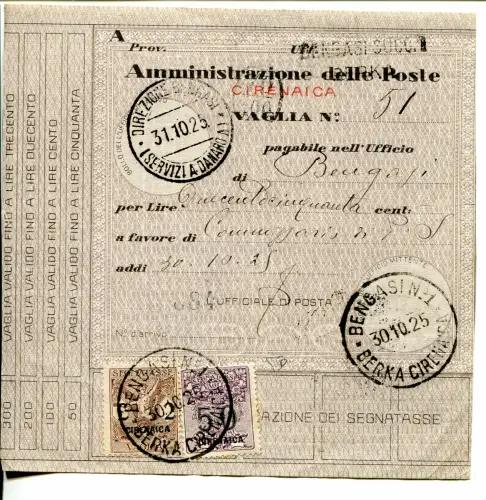 A
Prov. Uff.
BENGASI SUCC. 1
BERKA
Amministrazione delle Poste
CIRENAICA
VAGLIA N.º 51
pagabile nell'Ufficio
di Bengasi
per Lire: cent:
a favore di Commissario di P. S
addì 30.10.25
384 UFFICIALE DI POSTA
N.º d'arrivo
DIREZIONE BENGASI
31.10.25
(SERVIZI A DANARO)
BENGASI N-1
30.10.25
BERKA CIRENAICA
BENGASI N-1
30.10.25
BERKA CIRENAICA
SEGNATASSE
CIRENAICA
50
CIRENAICA
AZIONE DEI SEGNATASSE
VAGLIA VALIDO FINO A LIRE TRECENTO
300
VAGLIA VALIDO FINO A LIRE DUECENTO
200
VAGLIA VALIDO FINO A LIRE CENTO
100
VAGLIA VALIDO FINO A LIRE CINQUANTA
50